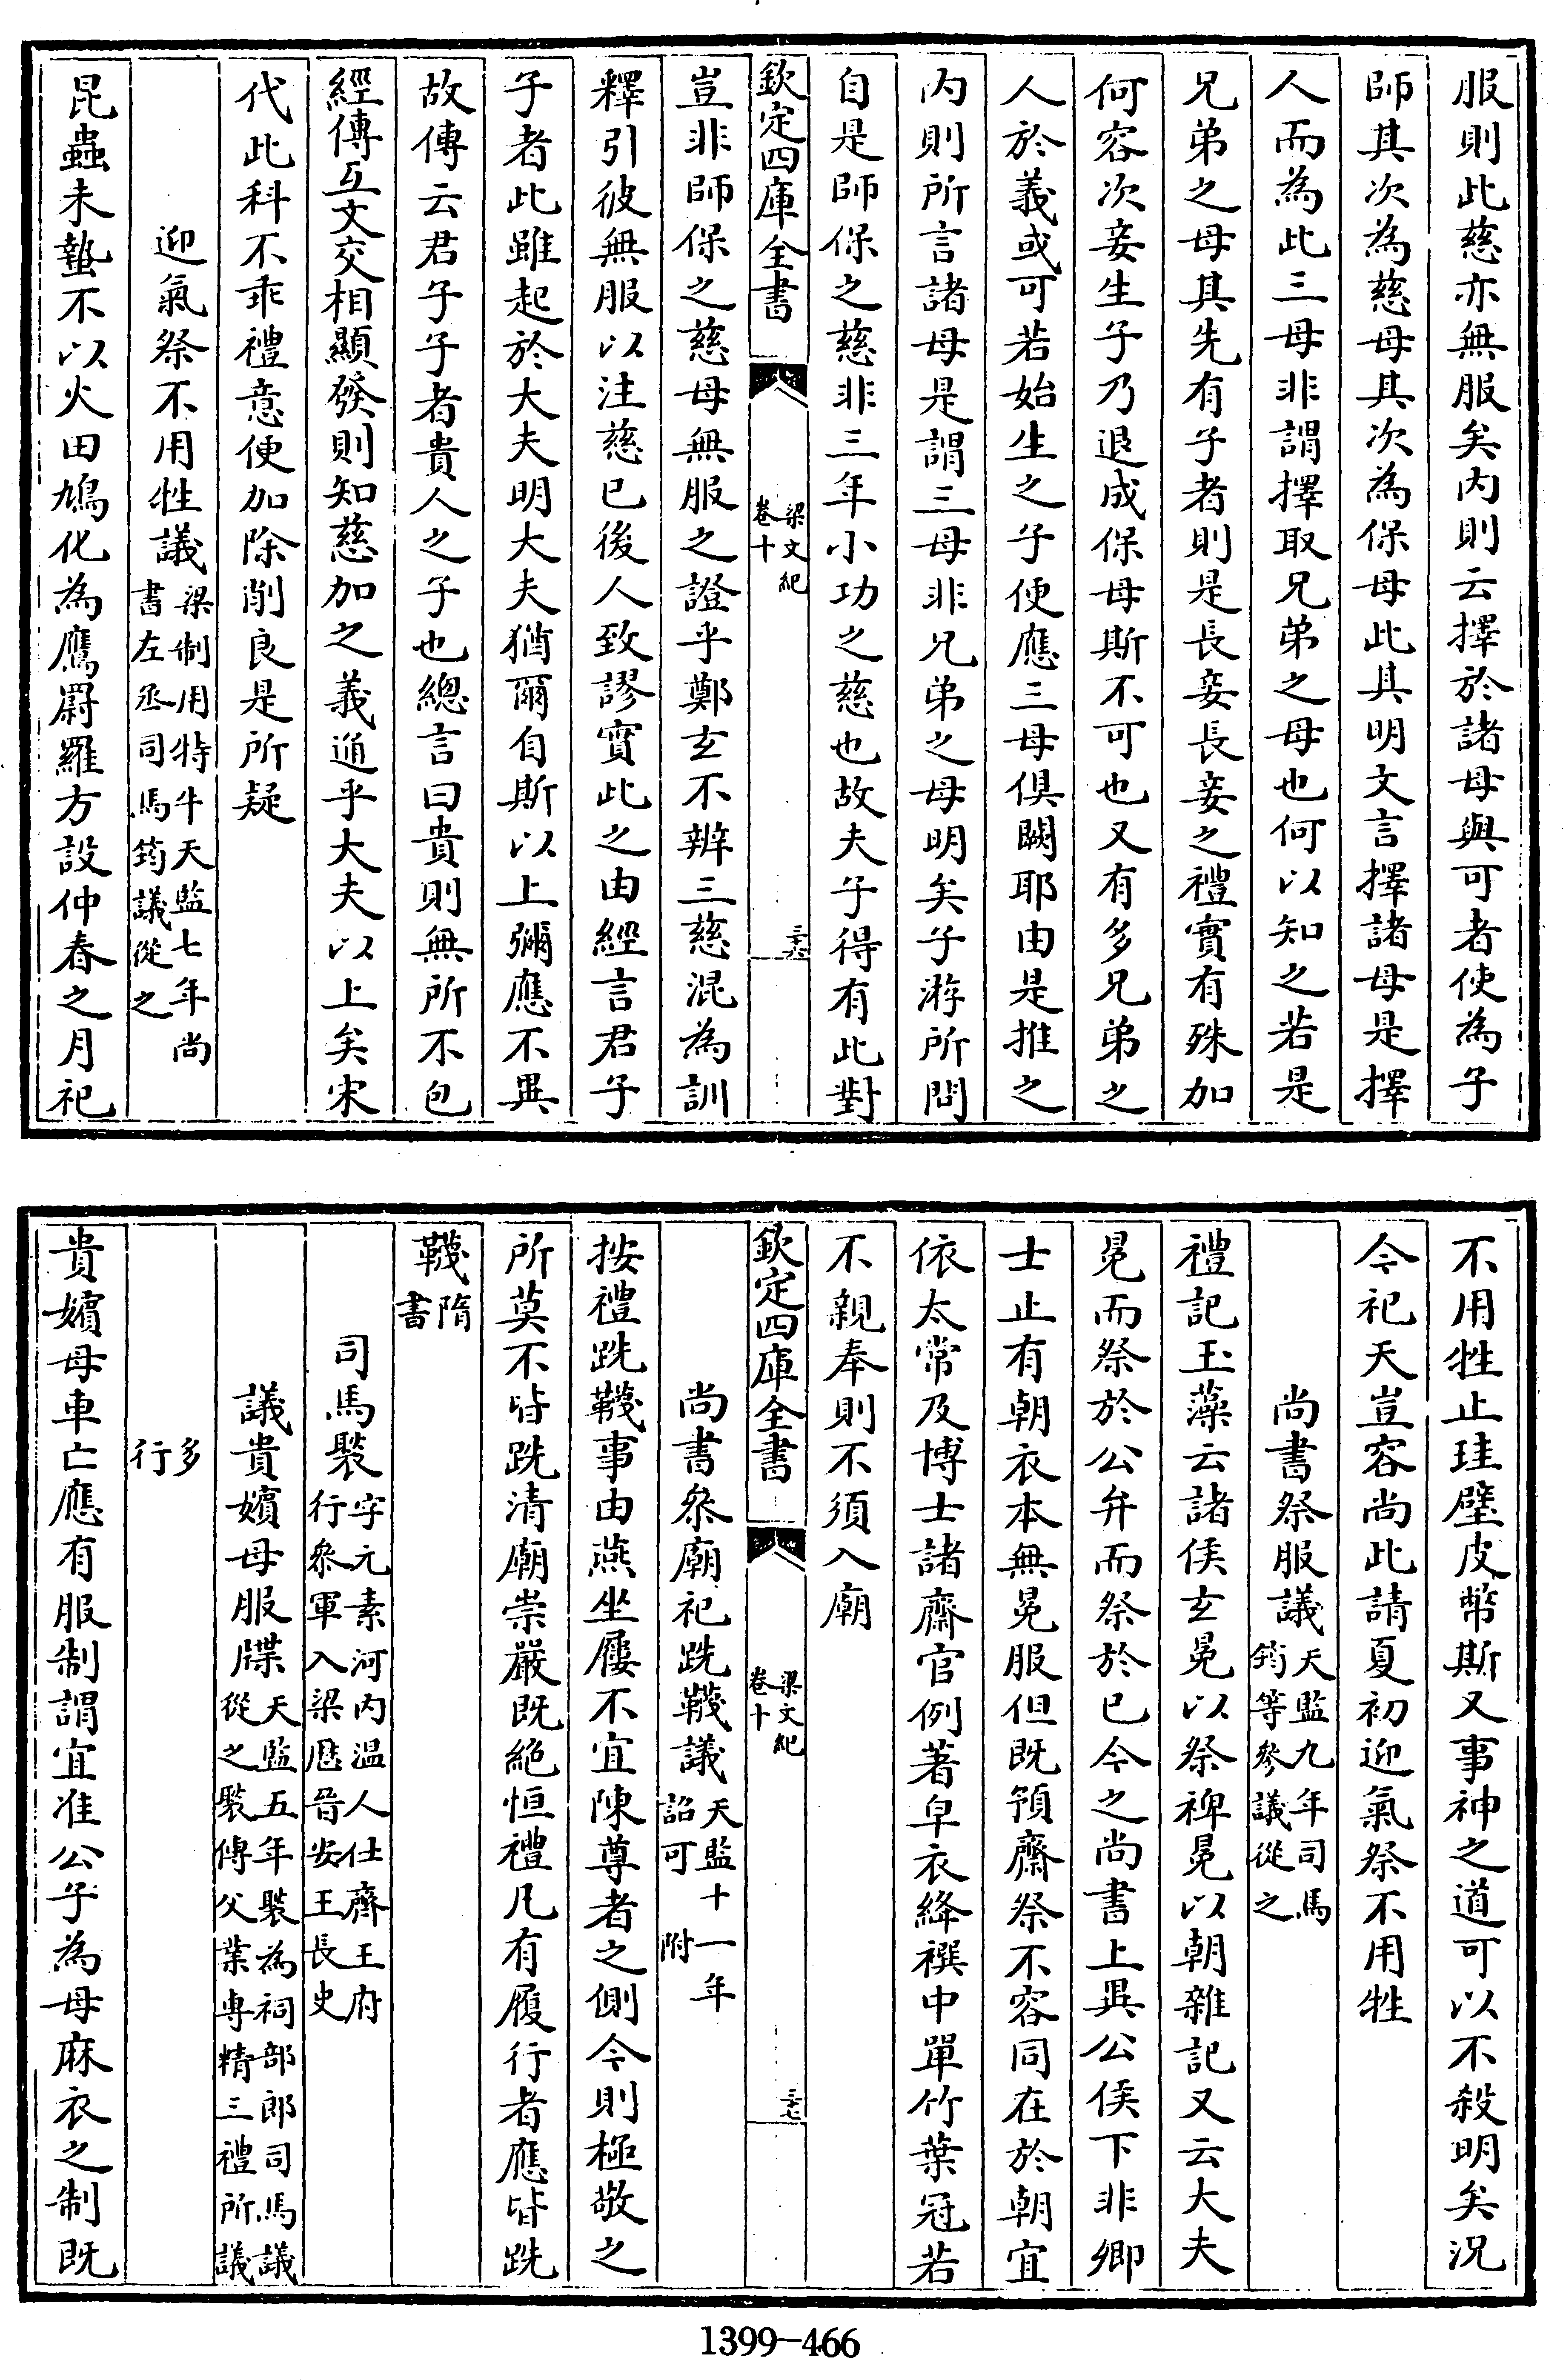 服則此慈亦無服矣内則云擇於諸母與可者使為子
師其次為慈母其次為保母此其明文言擇諸母是擇
人而為此三母非謂擇取兄弟之母也何以知之若是
兄弟之母其先有子者則是長妾長妾之禮實有殊加
何容次妾生子乃退成保母斯不可也又有多兄弟之
人於義或可若始生之子便應三母俱闕耶由是推之
内則所言諸母是謂三母非兄弟之母明矣子游所問
自是師保之慈非三年小功之慈也故夫子得有此對
欽定四庫全書
梁文紀
卷十
三十六
豈非師保之慈母無服之證乎鄭玄不辨三慈混為訓
釋引彼無服以注慈已後人致謬實此之由經言君子
子者此雖起於大夫明大夫猶爾自斯以上彌應不異
故傳云君子子者貴人之子也總言曰貴則無所不包
經傳互文交相顯發則知慈加之義通乎大夫以上矣宋
代此科不乖禮意便加除削良是所疑
迎氣祭不用牲議梁制用特牛天監七年尚
書左丞司馬筠議從之
昆蟲未蟄不以火田鳩化為鷹罻羅方設仲春之月祀
不用牲止珪璧皮幣斯又事神之道可以不殺明矣況
今祀天豈容尚此請夏初迎氣祭不用牲
尚書祭服議天監九年司馬
筠等參議從之
禮記玉藻云諸侯玄冕以祭裨冕以朝雜記又云大夫
冕而祭於公弁而祭於已今之尚書上異公侯下非卿
士止有朝衣本無冕服但既預齋祭不容同在於朝宜
依太常及博士諸齋官例著皁衣絳襈中單竹葉冠若
不親奉則不須入廟
欽定四庫全書
梁文紀
卷十
三十七
尚書叅廟祀跣韈議天監十一年
詔可 附
按禮跣韈事由燕坐屨不宜陳尊者之側今則極敬之
所莫不皆跣清廟崇嚴既絶恒禮凡有履行者應皆跣
韈隋
書
司馬褧字元素河内温人仕齊王府
行叅軍入梁歴晉安王長史
議貴嬪母服牒天監五年褧為祠部郎司馬議
從之褧傳父業專精三禮所議
多
行
貴嬪母車亡應有服制謂宜准公子為母麻衣之制既
1399-466